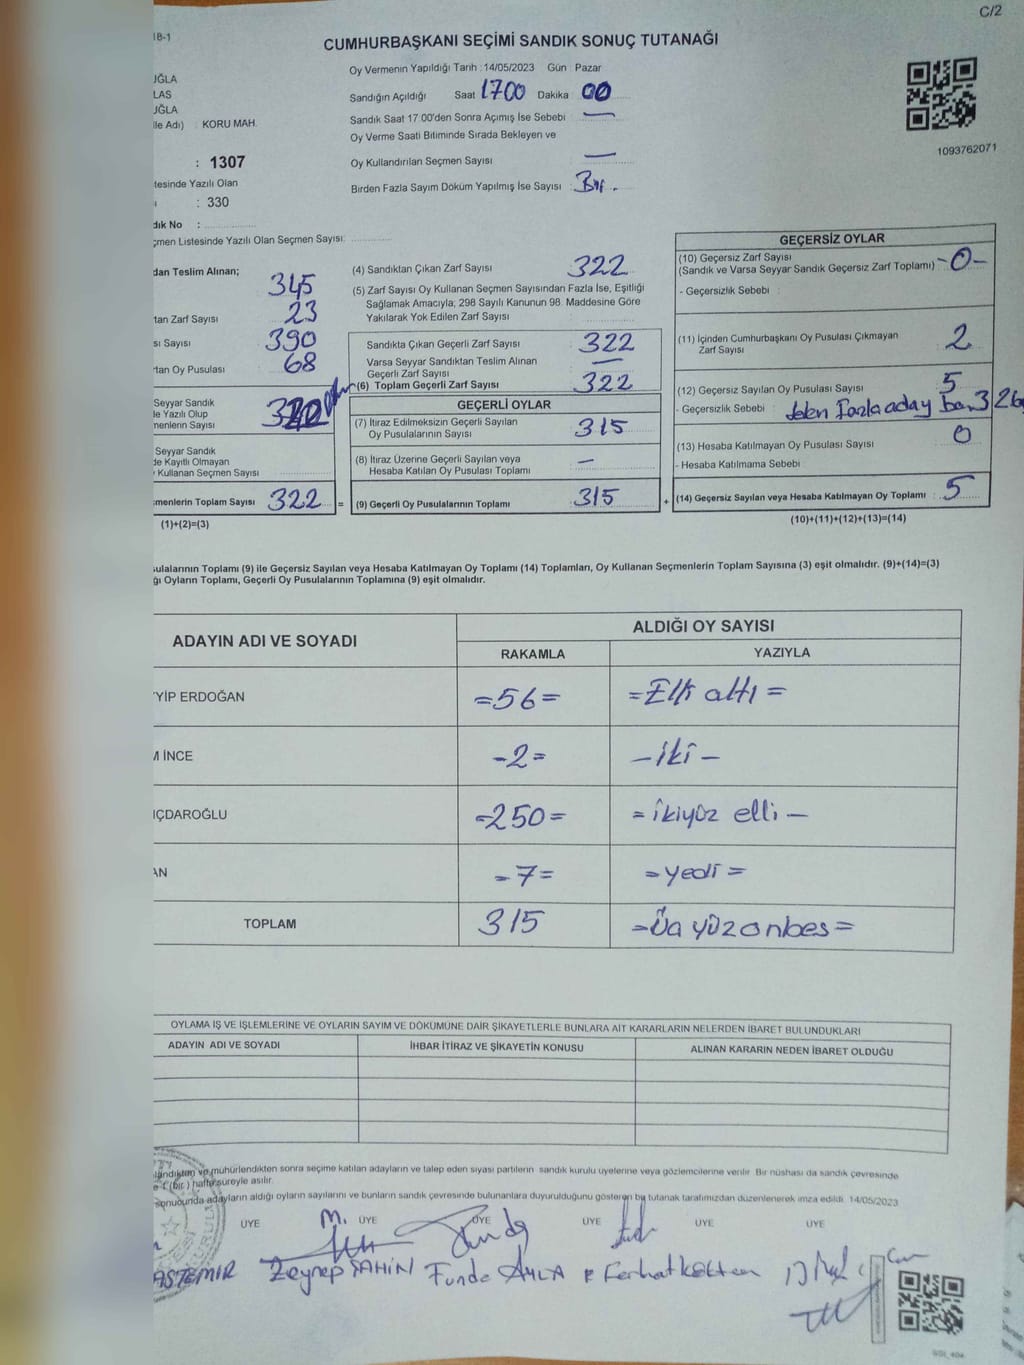 C/2
18-1
CUMHURBAŞKANI SEÇİMİ SANDIK SONUÇ TUTANAĞI
Oy Vermenin Yapıldığı Tarih :14/05/2023 Gün : Pazar
Sandığın Açıldığı Saat 1700 Dakika 00
Sandık Saat 17 00'den Sonra Açımış İse Sebebi —
Oy Verme Saati Bitiminde Sırada Bekleyen ve
Oy Kullandırılan Seçmen Sayısı —
Birden Fazla Sayım Döküm Yapılmış İse Sayısı : Bir.
1093762071
UĞLA
LAS
UĞLA
le Adı) : KORU MAH.
: 1307
tesinde Yazılı Olan
: 330
dık No :
çmen Listesinde Yazılı Olan Seçmen Sayısı:
dan Teslim Alınan;
345
23
tan Zarf Sayısı
sı Sayısı 390
68
rtan Oy Pusulası
Seyyar Sandık
le Yazılı Olup
nenlerin Sayısı
Seyyar Sandık
de Kayıtlı Olmayan
Kullanan Seçmen Sayısı
çmenlerin Toplam Sayısı 322 =
(1)+(2)=(3)
(4) Sandıktan Çıkan Zarf Sayısı 322
(5) Zarf Sayısı Oy Kullanan Seçmen Sayısından Fazla İse, Eşitliği
Sağlamak Amacıyla; 298 Sayılı Kanunun 98. Maddesine Göre
Yakılarak Yok Edilen Zarf Sayısı :
Sandıkta Çıkan Geçerli Zarf Sayısı 322
Varsa Seyyar Sandıktan Teslim Alınan —
Geçerli Zarf Sayısı
(6) Toplam Geçerli Zarf Sayısı 322
GEÇERLİ OYLAR
(7) İtiraz Edilmeksizin Geçerli Sayılan
Oy Pusulalarının Sayısı 315
(8) İtiraz Üzerine Geçerli Sayılan veya
Hesaba Katılan Oy Pusulası Toplamı —
(9) Geçerli Oy Pusulalarının Toplamı 315 +
GEÇERSİZ OYLAR
(10) Geçersiz Zarf Sayısı
(Sandık ve Varsa Seyyar Sandık Geçersiz Zarf Toplamı) -0-
- Geçersizlik Sebebi :
(11) İçinden Cumhurbaşkanı Oy Pusulası Çıkmayan
Zarf Sayısı 2
(12) Geçersiz Sayılan Oy Pusulası Sayısı 5
- Geçersizlik Sebebi : Fazla aday
(13) Hesaba Katılmayan Oy Pusulası Sayısı 0
- Hesaba Katılmama Sebebi
(14) Geçersiz Sayılan veya Hesaba Katılmayan Oy Toplamı : 5
(10)+(11)+(12)+(13)=(14)
ulalarının Toplamı (9) ile Geçersiz Sayılan veya Hesaba Katılmayan Oy Toplamı (14) Toplamları, Oy Kullanan Seçmenlerin Toplam Sayısına (3) eşit olmalıdır. (9)+(14)=(3)
ğı Oyların Toplamı, Geçerli Oy Pusulalarının Toplamına (9) eşit olmalıdır.
ADAYIN ADI VE SOYADI
ALDIĞI OY SAYISI
RAKAMLA YAZIYLA
YİP ERDOĞAN =56= =Elli altı=
M İNCE -2= -iki-
IÇDAROĞLU =250= =ikiyüz elli-
AN -7= =yedi=
TOPLAM 315 =Üç yüz onbes=
OYLAMA İŞ VE İŞLEMLERİNE VE OYLARIN SAYIM VE DÖKÜMÜNE DAİR ŞİKAYETLERLE BUNLARA AİT KARARLARIN NELERDEN İBARET BULUNDUKLARI
ADAYIN ADI VE SOYADI İHBAR İTİRAZ VE ŞİKAYETİN KONUSU ALINAN KARARIN NEDEN İBARET OLDUĞU
landıktan ve mühürlendikten sonra seçime katılan adayların ve talep eden siyasi partilerin sandık kurulu üyelerine veya gözlemcilerine verilir. Bir nüshası da sandık çevresinde
e 1 (bir) hafta süreyle asılır.
sonucunda adayların aldığı oyların sayılarını ve bunların sandık çevresinde bulunanlara duyurulduğunu gösteren bu tutanak tarafımızdan düzenlenerek imza edildi. 14/05/2023
ÜYE M. ÜYE ÜYE ÜYE ÜYE ÜYE
ASTEMİR Zeynep ŞAHİN Funda AYLA Ferhat